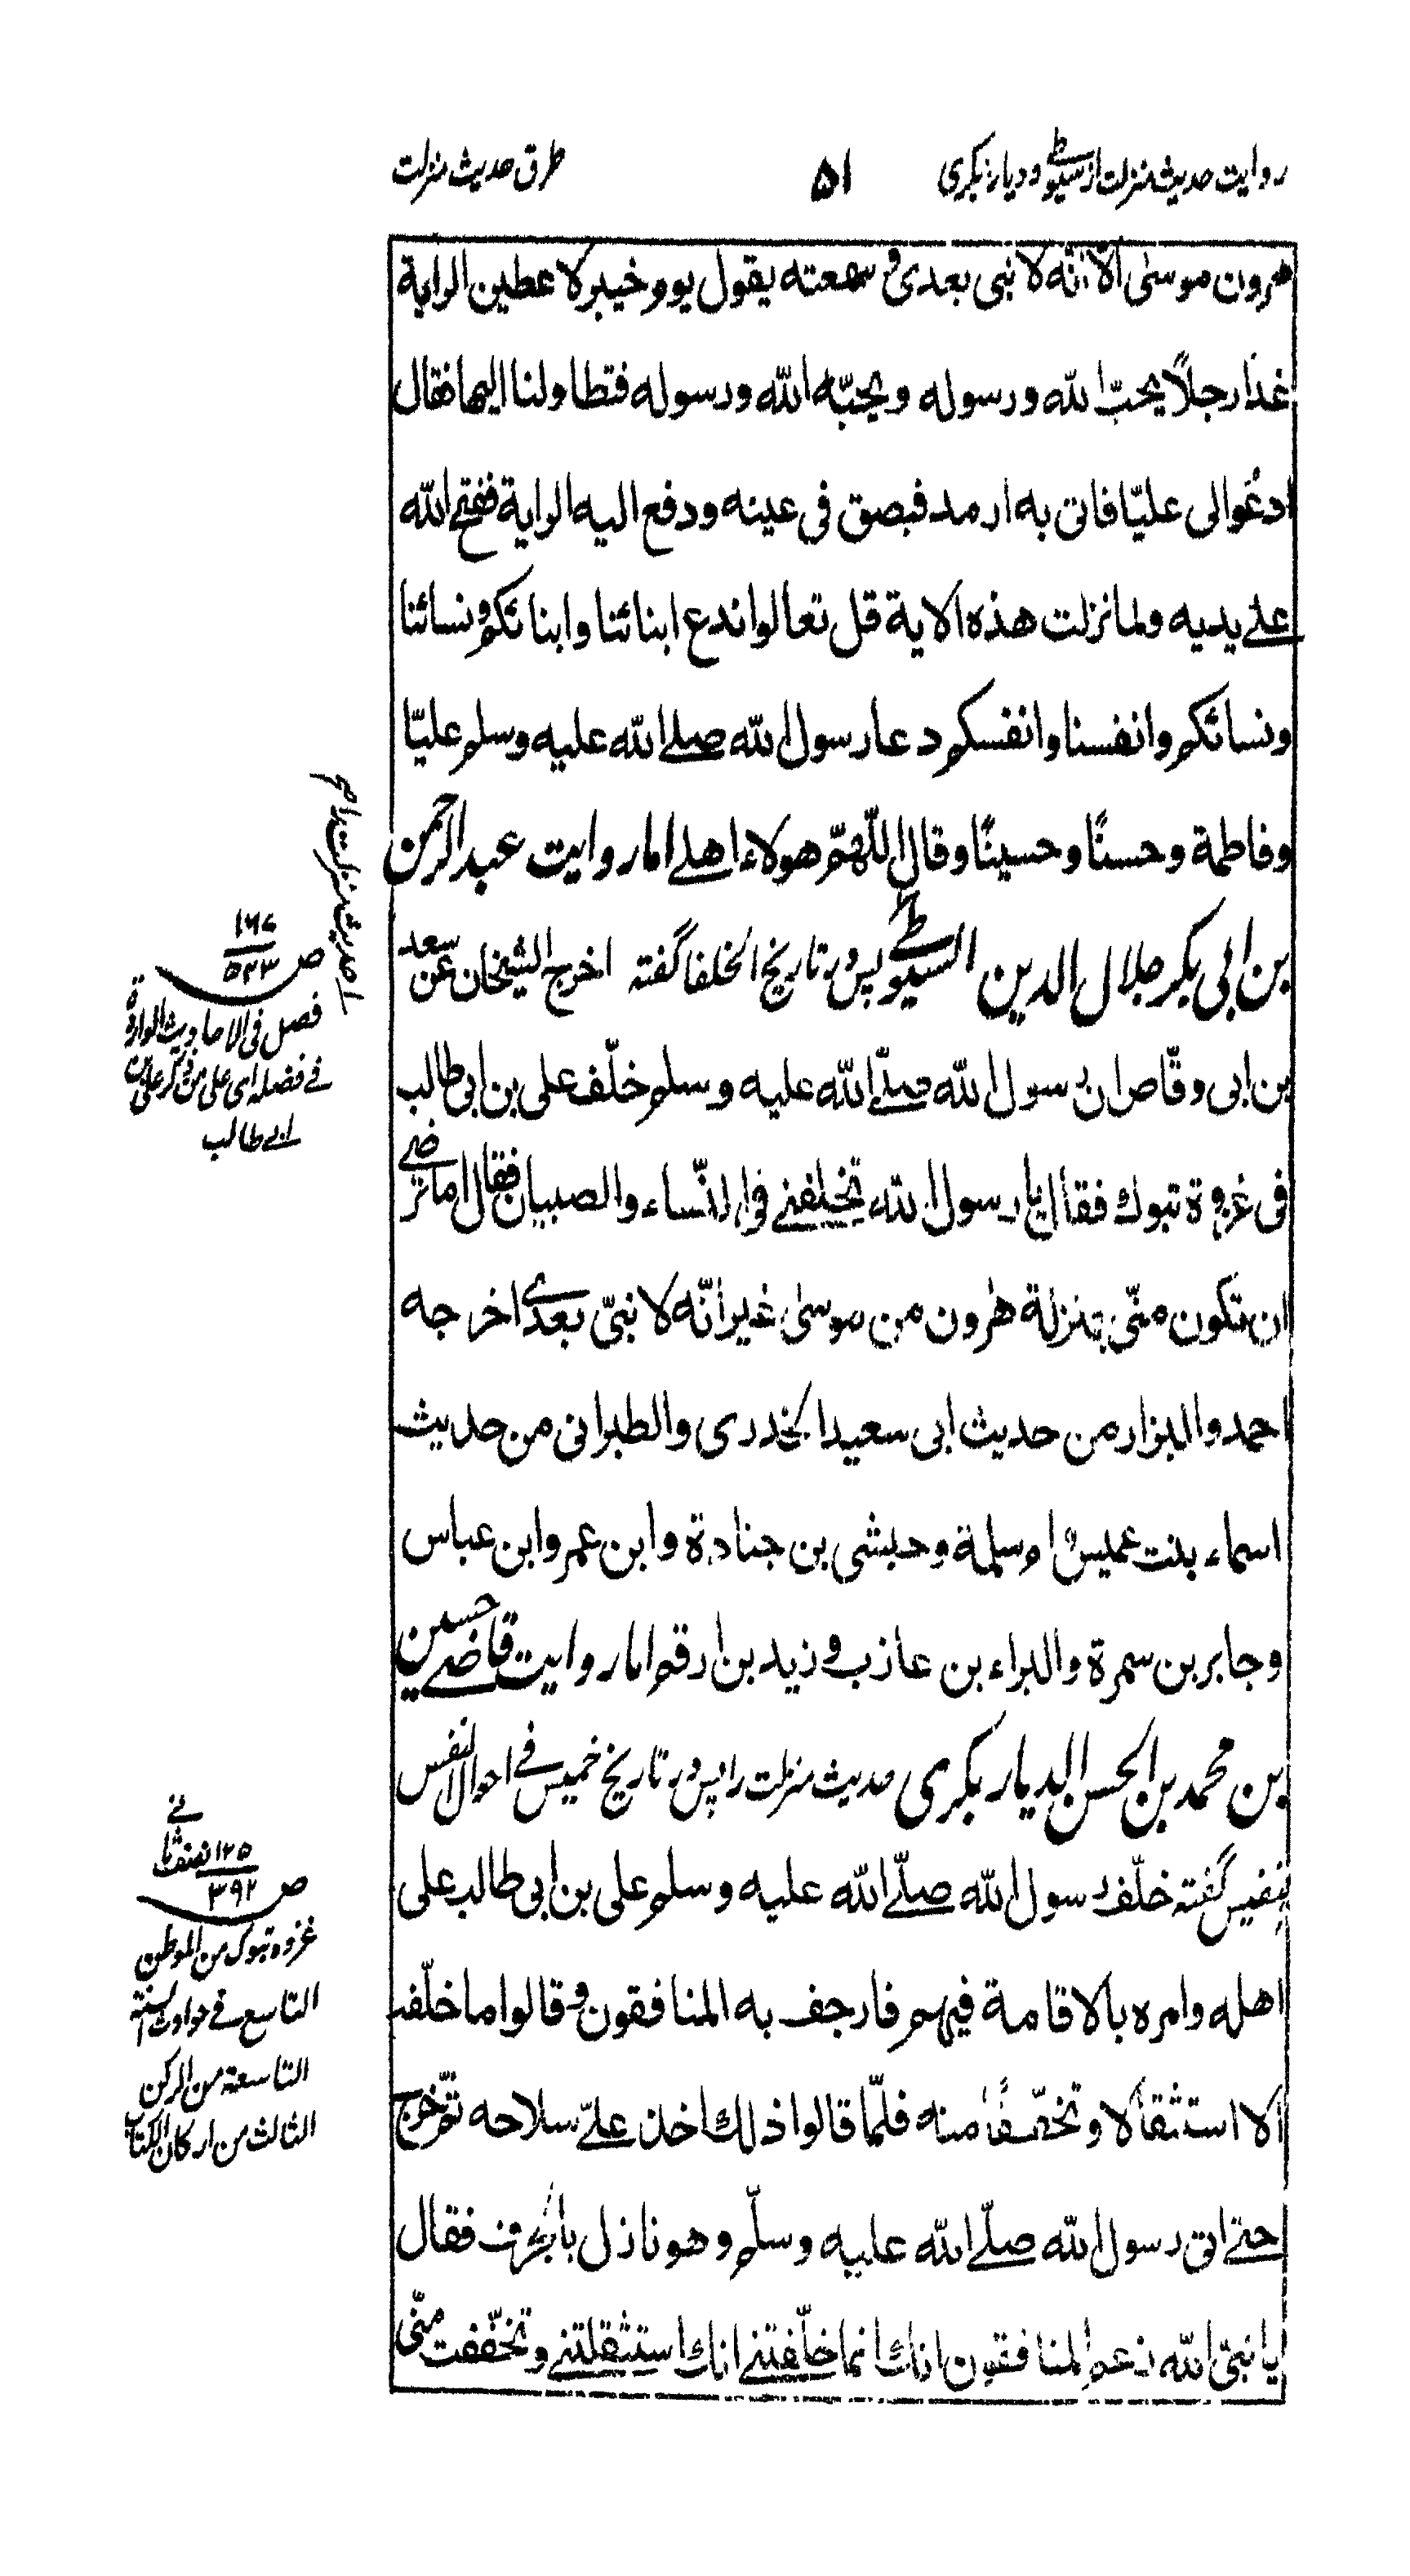 روایت حدیث منزلت از سیوطے و دیار بکری
۵۱
طرق حدیث منزلت
هرون موسیٰ الّا انّه لا نبی بعدی و سمعته یقول یوم خیبر لاعطین الرایة
غدًا رجلًا یحبّ الله و رسوله و یحبّه الله و رسوله فتطاولنا الیها فقال
ادعُوا لی علیّا فاتی به ارمد فبصق فی عینه و دفع الیه الرایة ففتح الله
علے یدیه و لما نزلت هذه الایة قل تعالوا ندع ابنائنا و ابنائکم و نسائنا
و نسائکم و انفسنا و انفسکم دعا رسول الله صلے الله علیه و سلم علیّا
و فاطمة و حسنًا و حسینًا و قال اللّهمّ هولاء اهلے اما روایت عبد الرحمن
بن ابی بکر جلال الدین السیوطے پس در تاریخ الخلفا گفته اخرج الشیخان عن سعد
بن ابی وقّاص ان رسول الله صلّے الله علیه و سلم خلّف علی بن ابی طالب
فی غزوة تبوك فقال یا رسول الله تخلفنے فی النّساء و الصبیان فقال اما ترضے
ان تکون منّی بمنزلة هٰرون من موسیٰ غیر انّه لا نبیّ بعدے اخرجه
احمد و البزار من حدیث ابی سعید الخدری و الطبرانی من حدیث
اسماء بنت عمیس و ام سلمة و حبشی بن جنادة و ابن عمر و ابن عباس
و جابر بن سمرة و البراء بن عازب و زید بن ارقم اما روایت قاضے حسین
بن محمد بن الحسن الدیار بکری حدیث منزلت را پس در تاریخ خمیس فے احوال النفس
نفیس گفته خلّف رسول الله صلّے الله علیه و سلم علی بن ابی طالب علی
اهله و امره بالاقامة فیهم فارجف به المنافقون و قالوا ما خلّفه
الا استثقالا و تخفّفًا منه فلمّا قالوا ذلك اخذ علے سلاحه ثمّ خرج
حتے اتی رسول الله صلّے الله علیه و سلّم و هو نازل بالجرف فقال
یا نبیّ الله زعم المنافقون انك انما خلّفتنے انك استثقلتنے و تخفّفت منّی
ص ۱۶۷
۵۲۳
فصل فی الاحادیث الواردة
فے فضله ای علی من ذکر علی بن
ابے طالب
ص ۱۲۵ نصف ثانے
۳۹۲
غزوه تبوک من الموطن
التاسع فے حوادث السنة
التاسعة من الرکن
الثالث من ارکان الکتاب